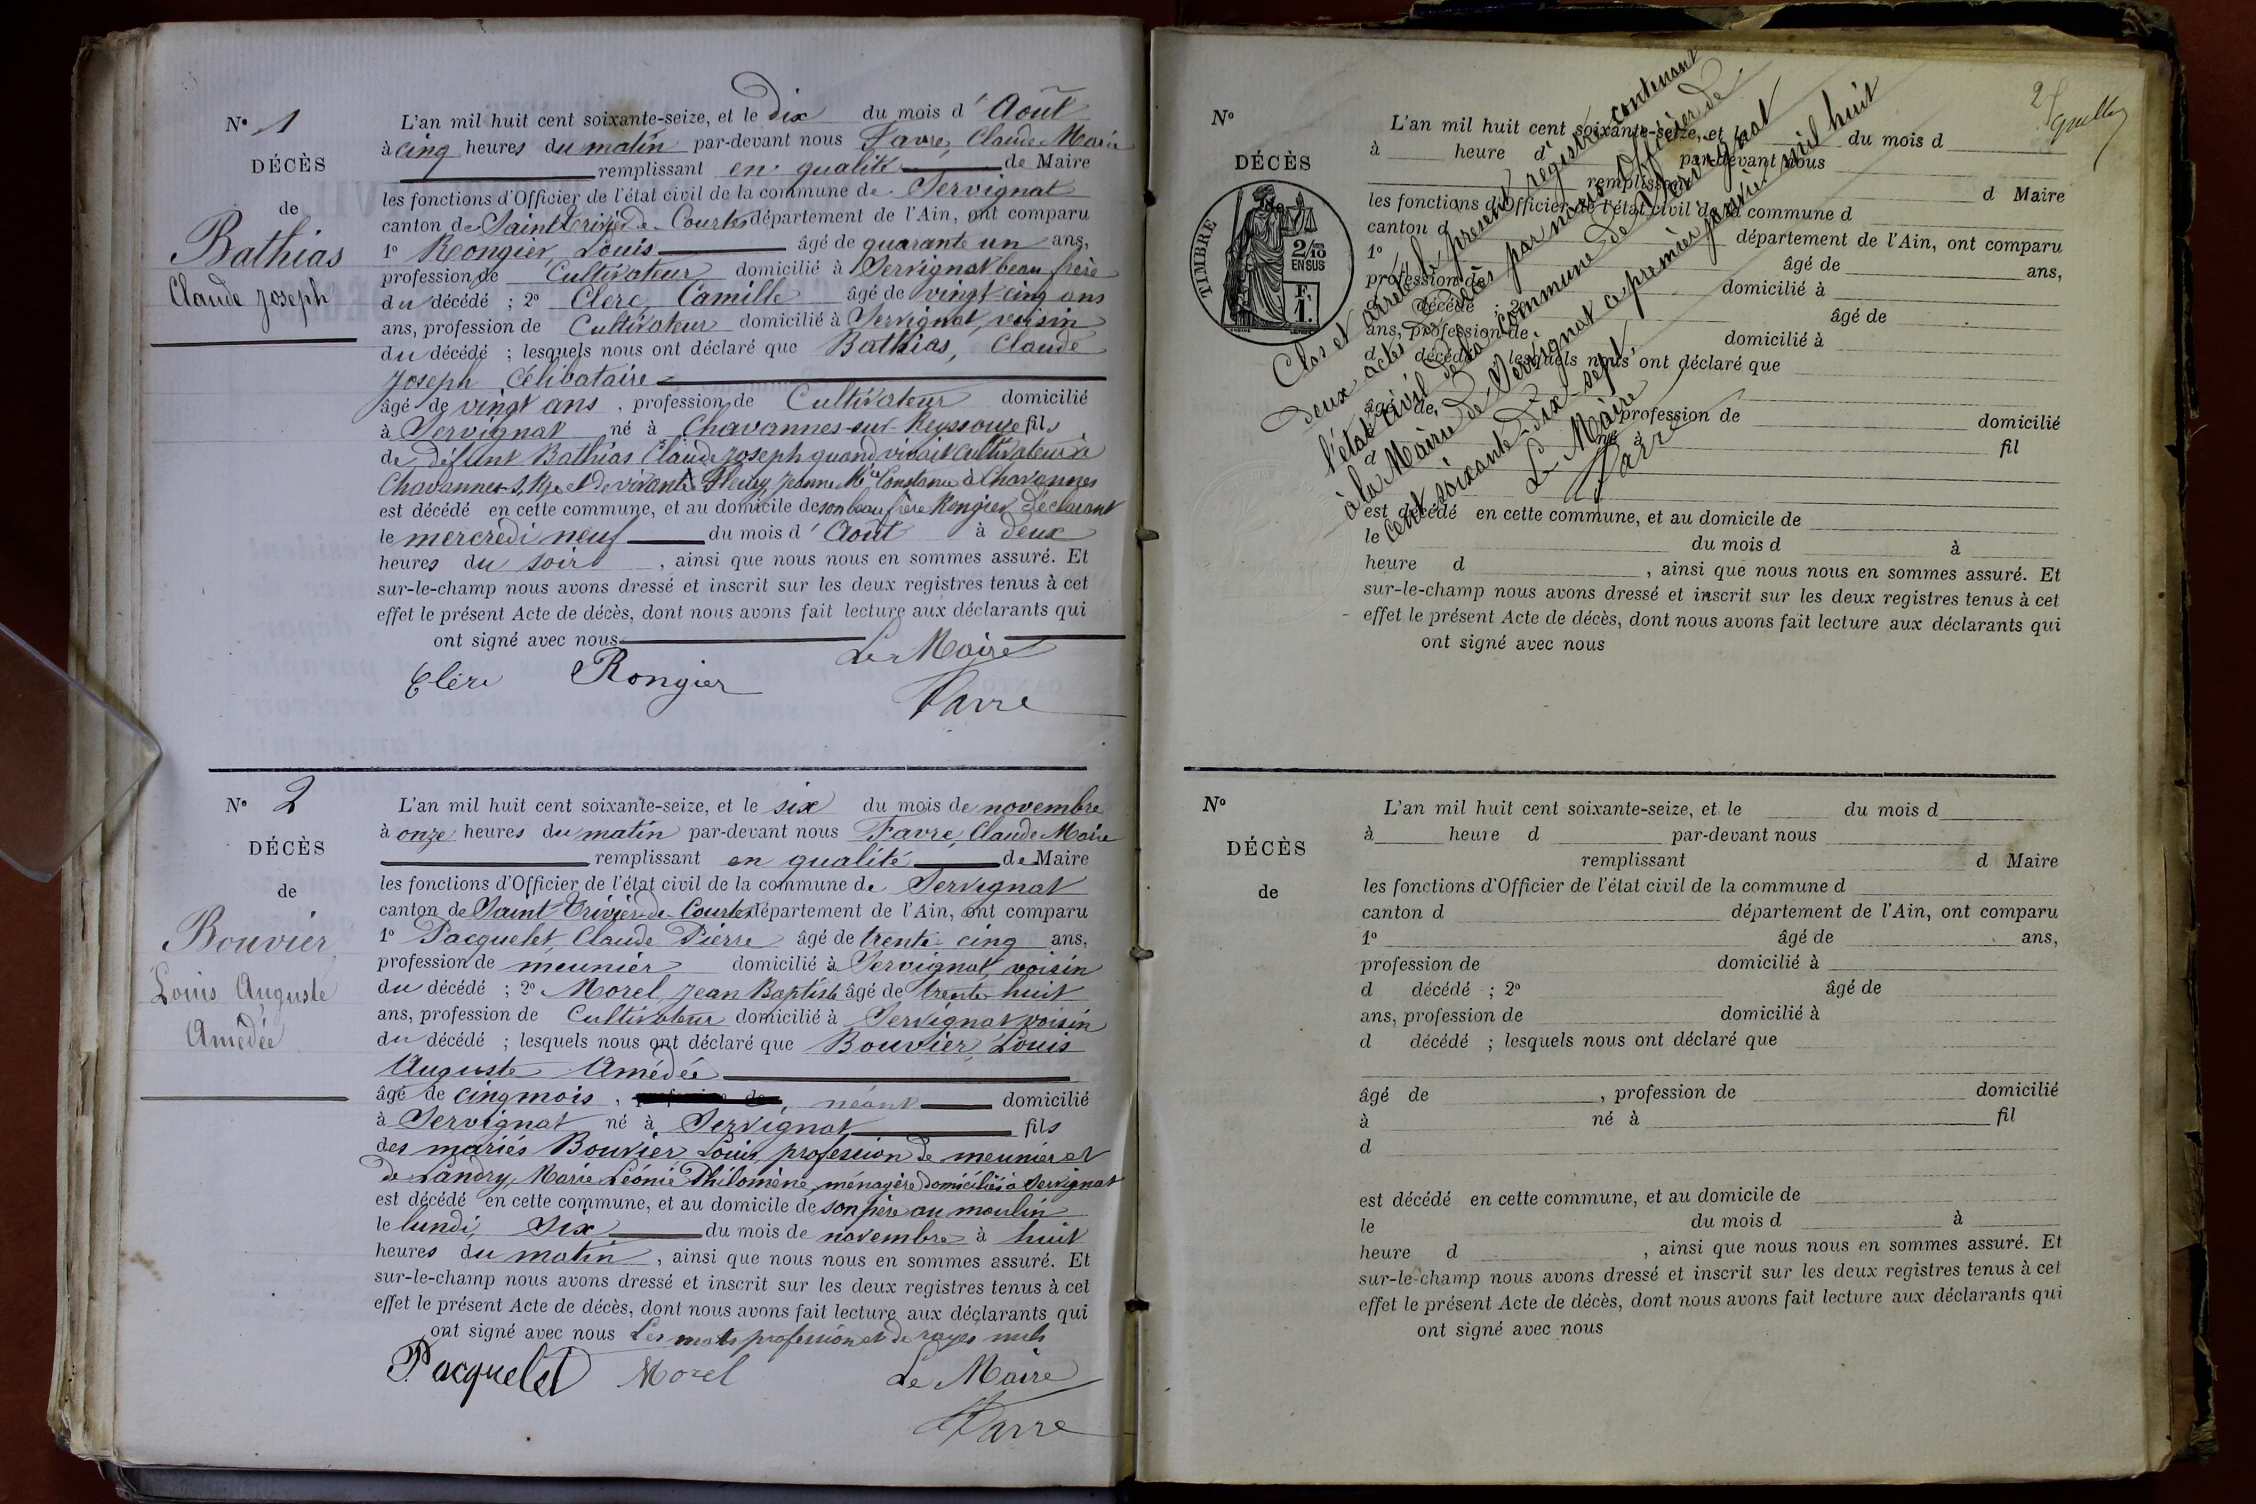 N° 1
DÉCÈS
de
Bathias
Claude Joseph
L'an mil huit cent soixante-seize, et le dix du mois d'Août
à cinq heures du matin par-devant nous Favre, Claude Marie
remplissant en qualité de Maire
les fonctions d'Officier de l'état civil de la commune de Servignat
canton de Saint Trivier de Courtes département de l'Ain, ont comparu
1° Reongier, Louis âgé de quarante un ans,
profession de Cultivateur domicilié à Servignat beau frère
du décédé ; 2° Clerc, Camille âgé de vingt cinq ans
ans, profession de Cultivateur domicilié à Servignat, voisin
du décédé ; lesquels nous ont déclaré que Bathias, Claude
Joseph Célibataire
âgé de vingt ans , profession de Cultivateur domicilié
à Servignat né à Chavannes-sur-Reyssouze fils
de défunt Bathias Claude Joseph quand vivait cultivateur à
Chavannes s. Rze et de vivante Fleury, Jeanne Mie Constance à Chavannes
est décédé en cette commune, et au domicile de son beau frère Rongier déclarant
le mercredi neuf du mois d'Août à deux
heures du soir , ainsi que nous nous en sommes assuré. Et
sur-le-champ nous avons dressé et inscrit sur les deux registres tenus à cet
effet le présent Acte de décès, dont nous avons fait lecture aux déclarants qui
ont signé avec nous
Le Maire
Clerc Rongier
Favre
N° 2
DÉCÈS
de
Bouvier,
Louis Auguste
Amédée
L'an mil huit cent soixante-seize, et le six du mois de novembre
à onze heures du matin par-devant nous Favre, Claude Marie
remplissant en qualité de Maire
les fonctions d'Officier de l'état civil de la commune de Servignat
canton de Saint Trivier-de-Courtes département de l'Ain, ont comparu
1° Pacquelet, Claude Pierre âgé de trente-cinq ans,
profession de meunier domicilié à Servignat, voisin
du décédé ; 2° Morel, Jean Baptiste âgé de trente-huit
ans, profession de Cultivateur domicilié à Servignat voisin
du décédé ; lesquels nous ont déclaré que Bouvier, Louis
Auguste Amédée
âgé de cinq mois , profession de , néant domicilié
à Servignat né à Servignat fils
des mariés Bouvier Louis, profession de meunier et
de Landry, Marie Léonie Philomène, ménagère domiciliés à Servignat
est décédé en cette commune, et au domicile de son père au moulin
le lundi, six du mois de novembre à huit
heures du matin , ainsi que nous nous en sommes assuré. Et
sur-le-champ nous avons dressé et inscrit sur les deux registres tenus à cet
effet le présent Acte de décès, dont nous avons fait lecture aux déclarants qui
ont signé avec nous Les mots profession et de rayés nuls
Pacquelet Morel Le Maire
Favre
2
N°
DÉCÈS
TIMBRE
2/10
EN SUS
F.
1.
L'an mil huit cent soixante-seize, et le du mois d
à heure d par-devant nous
remplissant d Maire
les fonctions d'Officier de l'état civil de la commune d
canton d département de l'Ain, ont comparu
1° âgé de ans,
profession de domicilié à
d décédé ; 2° âgé de
ans, profession de domicilié à
d décédé ; lesquels nous ont déclaré que
âgé de , profession de domicilié
à né à fil
d
est décédé en cette commune, et au domicile de
le du mois d à
heure d , ainsi que nous nous en sommes assuré. Et
sur-le-champ nous avons dressé et inscrit sur les deux registres tenus à cet
effet le présent Acte de décès, dont nous avons fait lecture aux déclarants qui
ont signé avec nous
Clos et arrêté le présent registre contenant
deux actes de décès par nous Officier de
l'état civil de la commune de Servignat
à la Mairie de Servignat ce premier janvier mil huit
cent soixante-dix-sept
Le Maire
Favre
N°
DÉCÈS
de
L'an mil huit cent soixante-seize, et le du mois d
à heure d par-devant nous
remplissant d Maire
les fonctions d'Officier de l'état civil de la commune d
canton d département de l'Ain, ont comparu
1° âgé de ans,
profession de domicilié à
d décédé ; 2° âgé de
ans, profession de domicilié à
d décédé ; lesquels nous ont déclaré que
âgé de , profession de domicilié
à né à fil
d
est décédé en cette commune, et au domicile de
le du mois d à
heure d , ainsi que nous nous en sommes assuré. Et
sur-le-champ nous avons dressé et inscrit sur les deux registres tenus à cet
effet le présent Acte de décès, dont nous avons fait lecture aux déclarants qui
ont signé avec nous